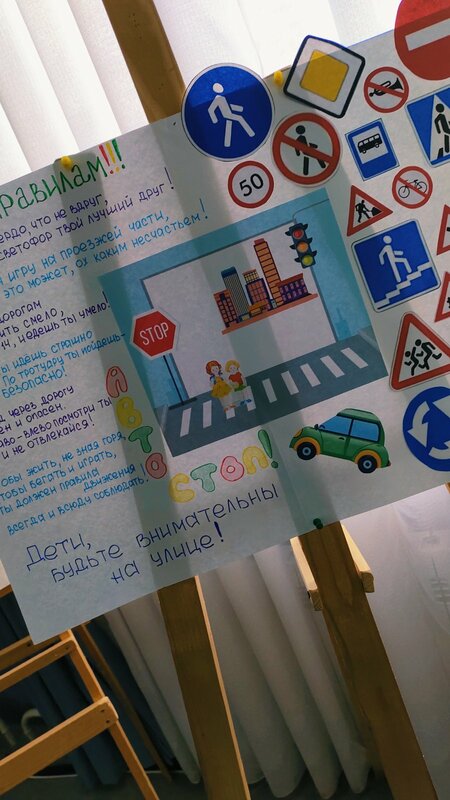 равилам!!!
ердо, что не вдруг,
светофор твой лучший друг!
й игру на проезжей части,
это может, ох каким несчастьем!
дорогам
ить смело,
идешь ты, умело!
ы идешь страшно
По тротуару ты пойдешь-
безопасно!
д через дорогу
ен и опасен.
аво-влево посмотри ты
и не отвлекайся!
обы жить, не зная горя,
тобы бегать и играть,
ты должен правила
движения
всегда и всюду соблюдать.
50
STOP
АВТОСТОП!
Дети,
будьте внимательны
на улице!